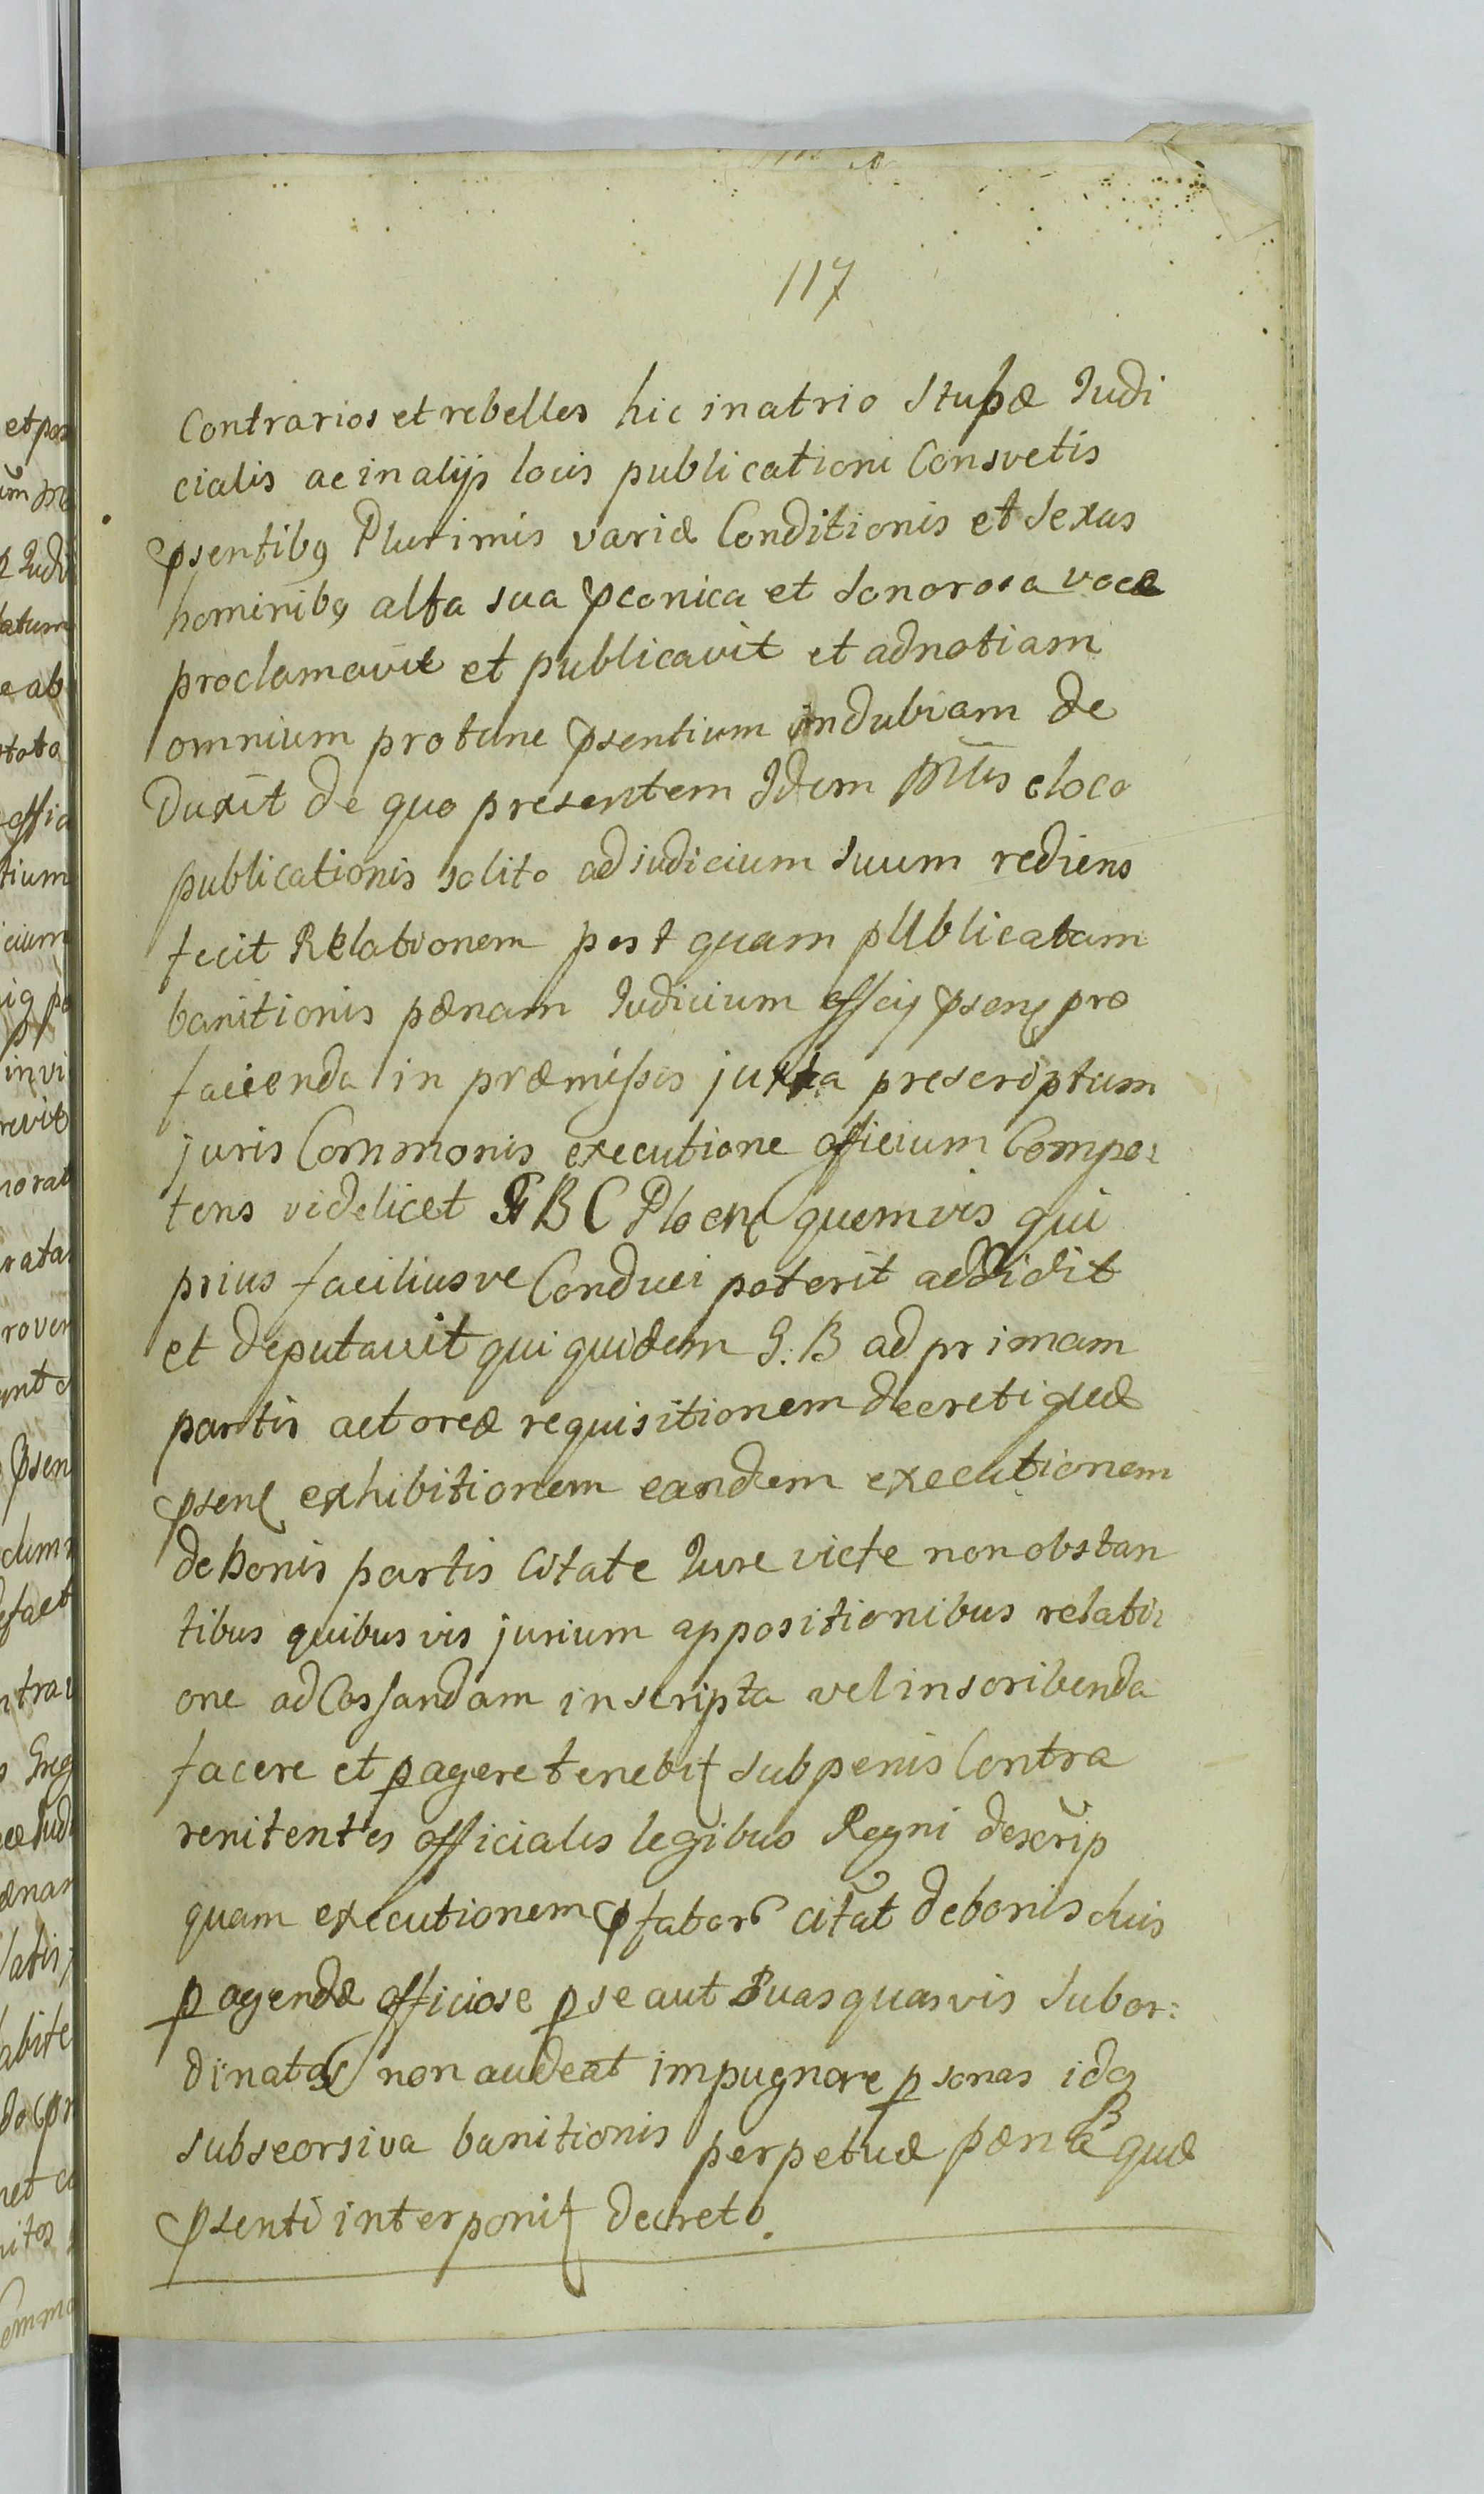 117
Contrarios et rebelles hic inatrio Stubæ Judi
cialis ac inalijs locis publicationi Consvetis
psentibq Plurimis variæ Conditionis et Sexus
hominibq alta sua pconica et Sonorosa voce
proclamavit et publicavit et adnotiam
omnium protunc psentium indubiam de
Duxit de quo presentem Idem eloco
publicationis solito adiudicium suum rediens
fecit Relationem post quam pUblicatam
banitionis pænam Judicium psens pro
facienda in præmissis juxta prescriptum
juris Commonis executione officium Compe:
tens videlicet G B C Plocen quemvis qui
prius faciliusve Conduci poterit addidit
et deputavit qui quidem G. B ad primam
partis actoreæ requisitionem decretiquæ
psens exhibitionem eandem executionem
debonis partis Citate Jure victe nonobstan
tibus quibus vis jurium appositionibus relati:
one adCassandam inscripta velinscribenda
facere et pagere tenebit subpenis Contra
renitentes officiales legibus Regni descrip
quam executionem citat debonis
pagendæ officiose p se aut Suasquasvis Subor:
dinatas non audeat impugnare psonas idq
subseorsiva banitionis perpetuæ pæna quæ
psenti interponit decreto.